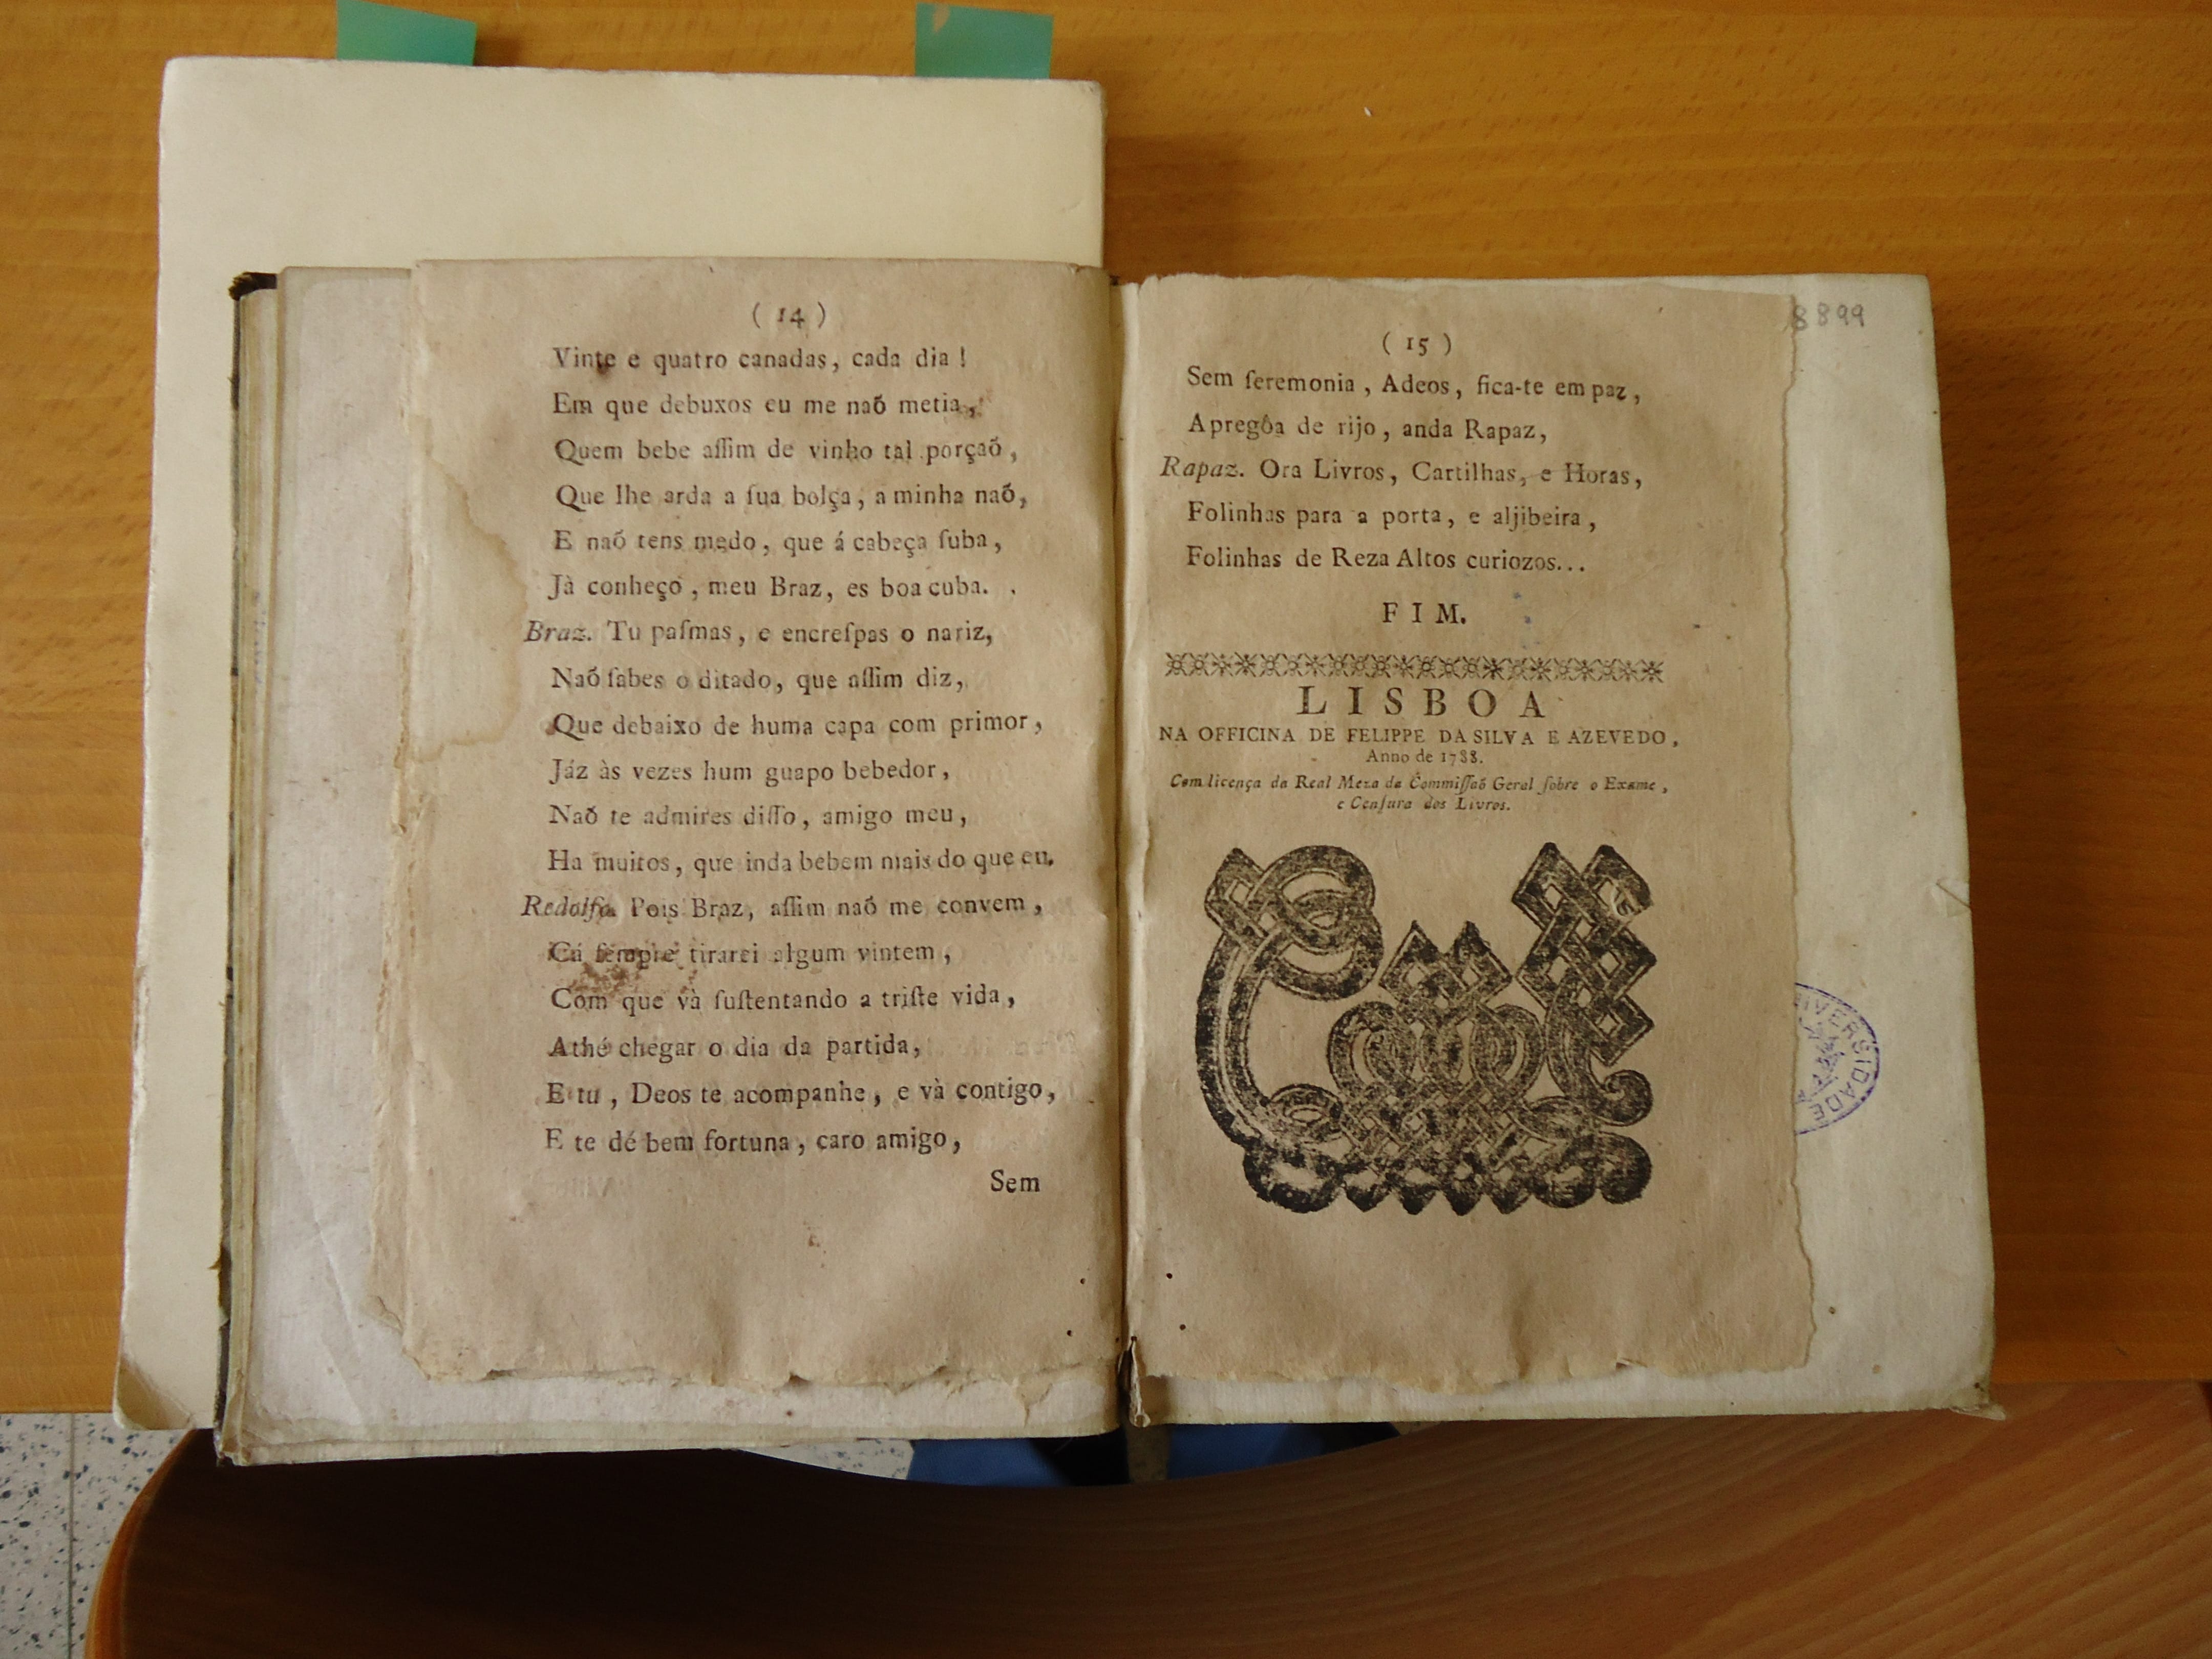 ( 14 )
Vinte e quatro canadas, cada dia !
Em que debuxos eu me naõ metia,
Quem bebe aſſim de vinho tal porçaõ,
Que lhe arda a ſua bolça, a minha naõ,
E naõ tens medo, que á cabeça ſuba,
Jà conheço, meu Braz, es boa cuba.
Braz. Tu paſmas, e encreſpas o nariz,
Naõ ſabes o ditado, que aſſim diz,
Que debaixo de huma capa com primor,
Jáz às vezes hum guapo bebedor,
Naõ te admires diſſo, amigo meu,
Ha muitos, que inda bebem mais do que eu.
Redolfo. Pois Braz, aſſim naõ me convem,
Cá ſempre tirarei algum vintem,
Com que và ſuſtentando a triſte vida,
Athé chegar o dia da partida,
E tu, Deos te acompanhe, e và contigo,
E te dé bem fortuna, caro amigo,
Sem
( 15 )
Sem ſeremonia, Adeos, fica-te em paz,
Apregôa de rijo, anda Rapaz,
Rapaz. Ora Livros, Cartilhas, e Horas,
Folinhas para a porta, e aljibeira,
Folinhas de Reza Altos curiozos...
FIM.
LISBOA
NA OFFICINA DE FELIPPE DA SILVA E AZEVEDO,
Anno de 1788.
Com licença da Real Meza da Commiſſaõ Geral ſobre o Exame,
e Cenſura dos Livros.
8899